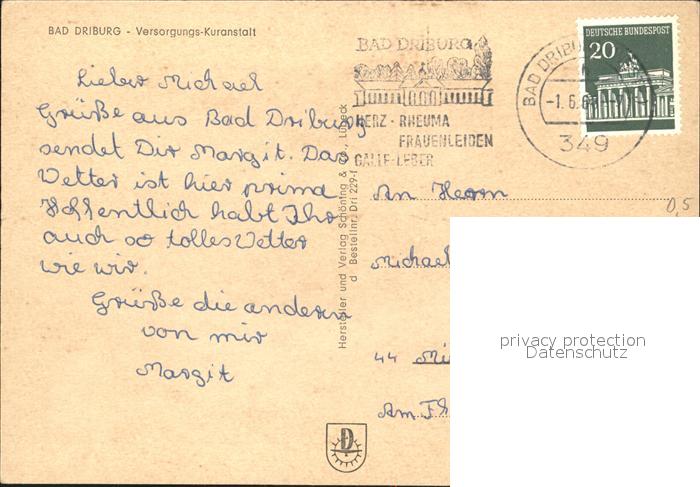 BAD DRIBURG - Versorgungs-Kuranstalt
Lieber Michael
Grüße aus Bad Driburg
sendet Dir Margit. Das
Wetter ist hier prima
Hoffentlich habt Ihr
auch so tolles Wetter
wie wir.
Grüße die anderen
von mir
Margit
Hersteller und Verlag Schöning & Co., Lübeck
d Bestellnr. Dri 229-f
BAD DRIBURG
HERZ - RHEUMA
FRAUENLEIDEN
GALLE-LEBER
BAD DRIBU
-1.6.6
349
DEUTSCHE BUNDESPOST
20
0,5
An Herrn
Michael
44
Am
privacy protection
Datenschutz
D